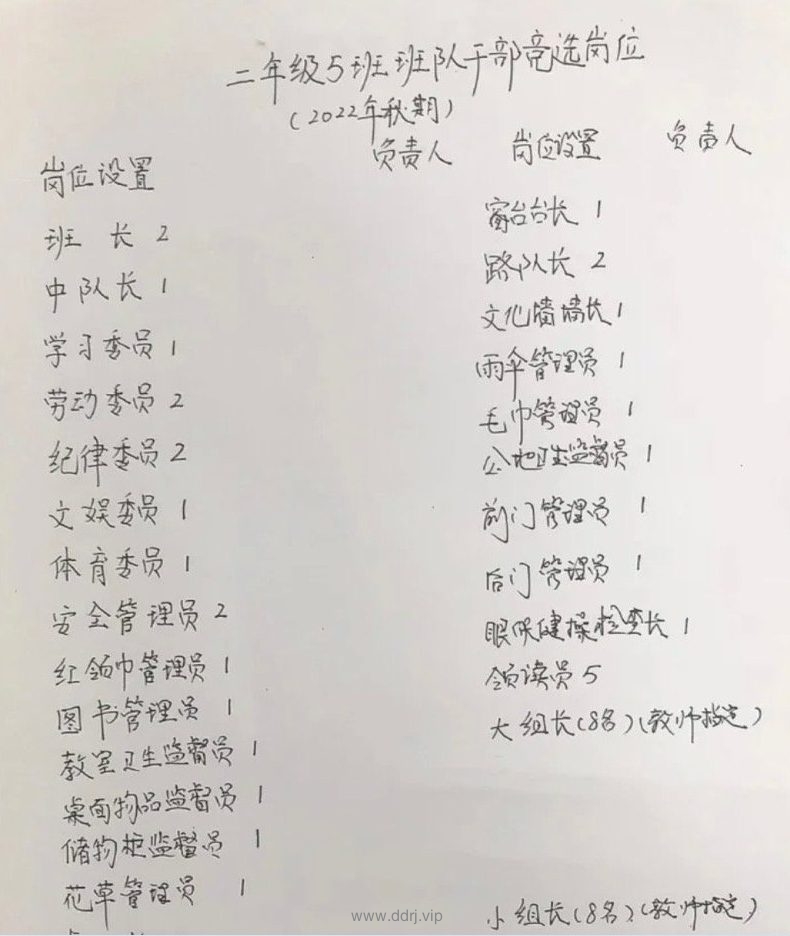 二年级5班班队干部竞选岗位
(2022年秋期)
岗位设置 负责人
班 长 2
中队长 1
学习委员 1
劳动委员 2
纪律委员 2
文娱委员 1
体育委员 1
安全管理员 2
红领巾管理员 1
图书管理员 1
教室卫生监督员 1
桌面物品监督员 1
储物柜监督员 1
花草管理员 1
岗位设置 负责人
窗台台长 1
路队长 2
文化墙墙长 1
雨伞管理员 1
毛巾管理员 1
公地卫生监督员 1
前门管理员 1
后门管理员 1
眼保健操检查长 1
领读员 5
大组长(8名)(教师指定)
小组长(8名)(教师指定)
www.ddrj.vip